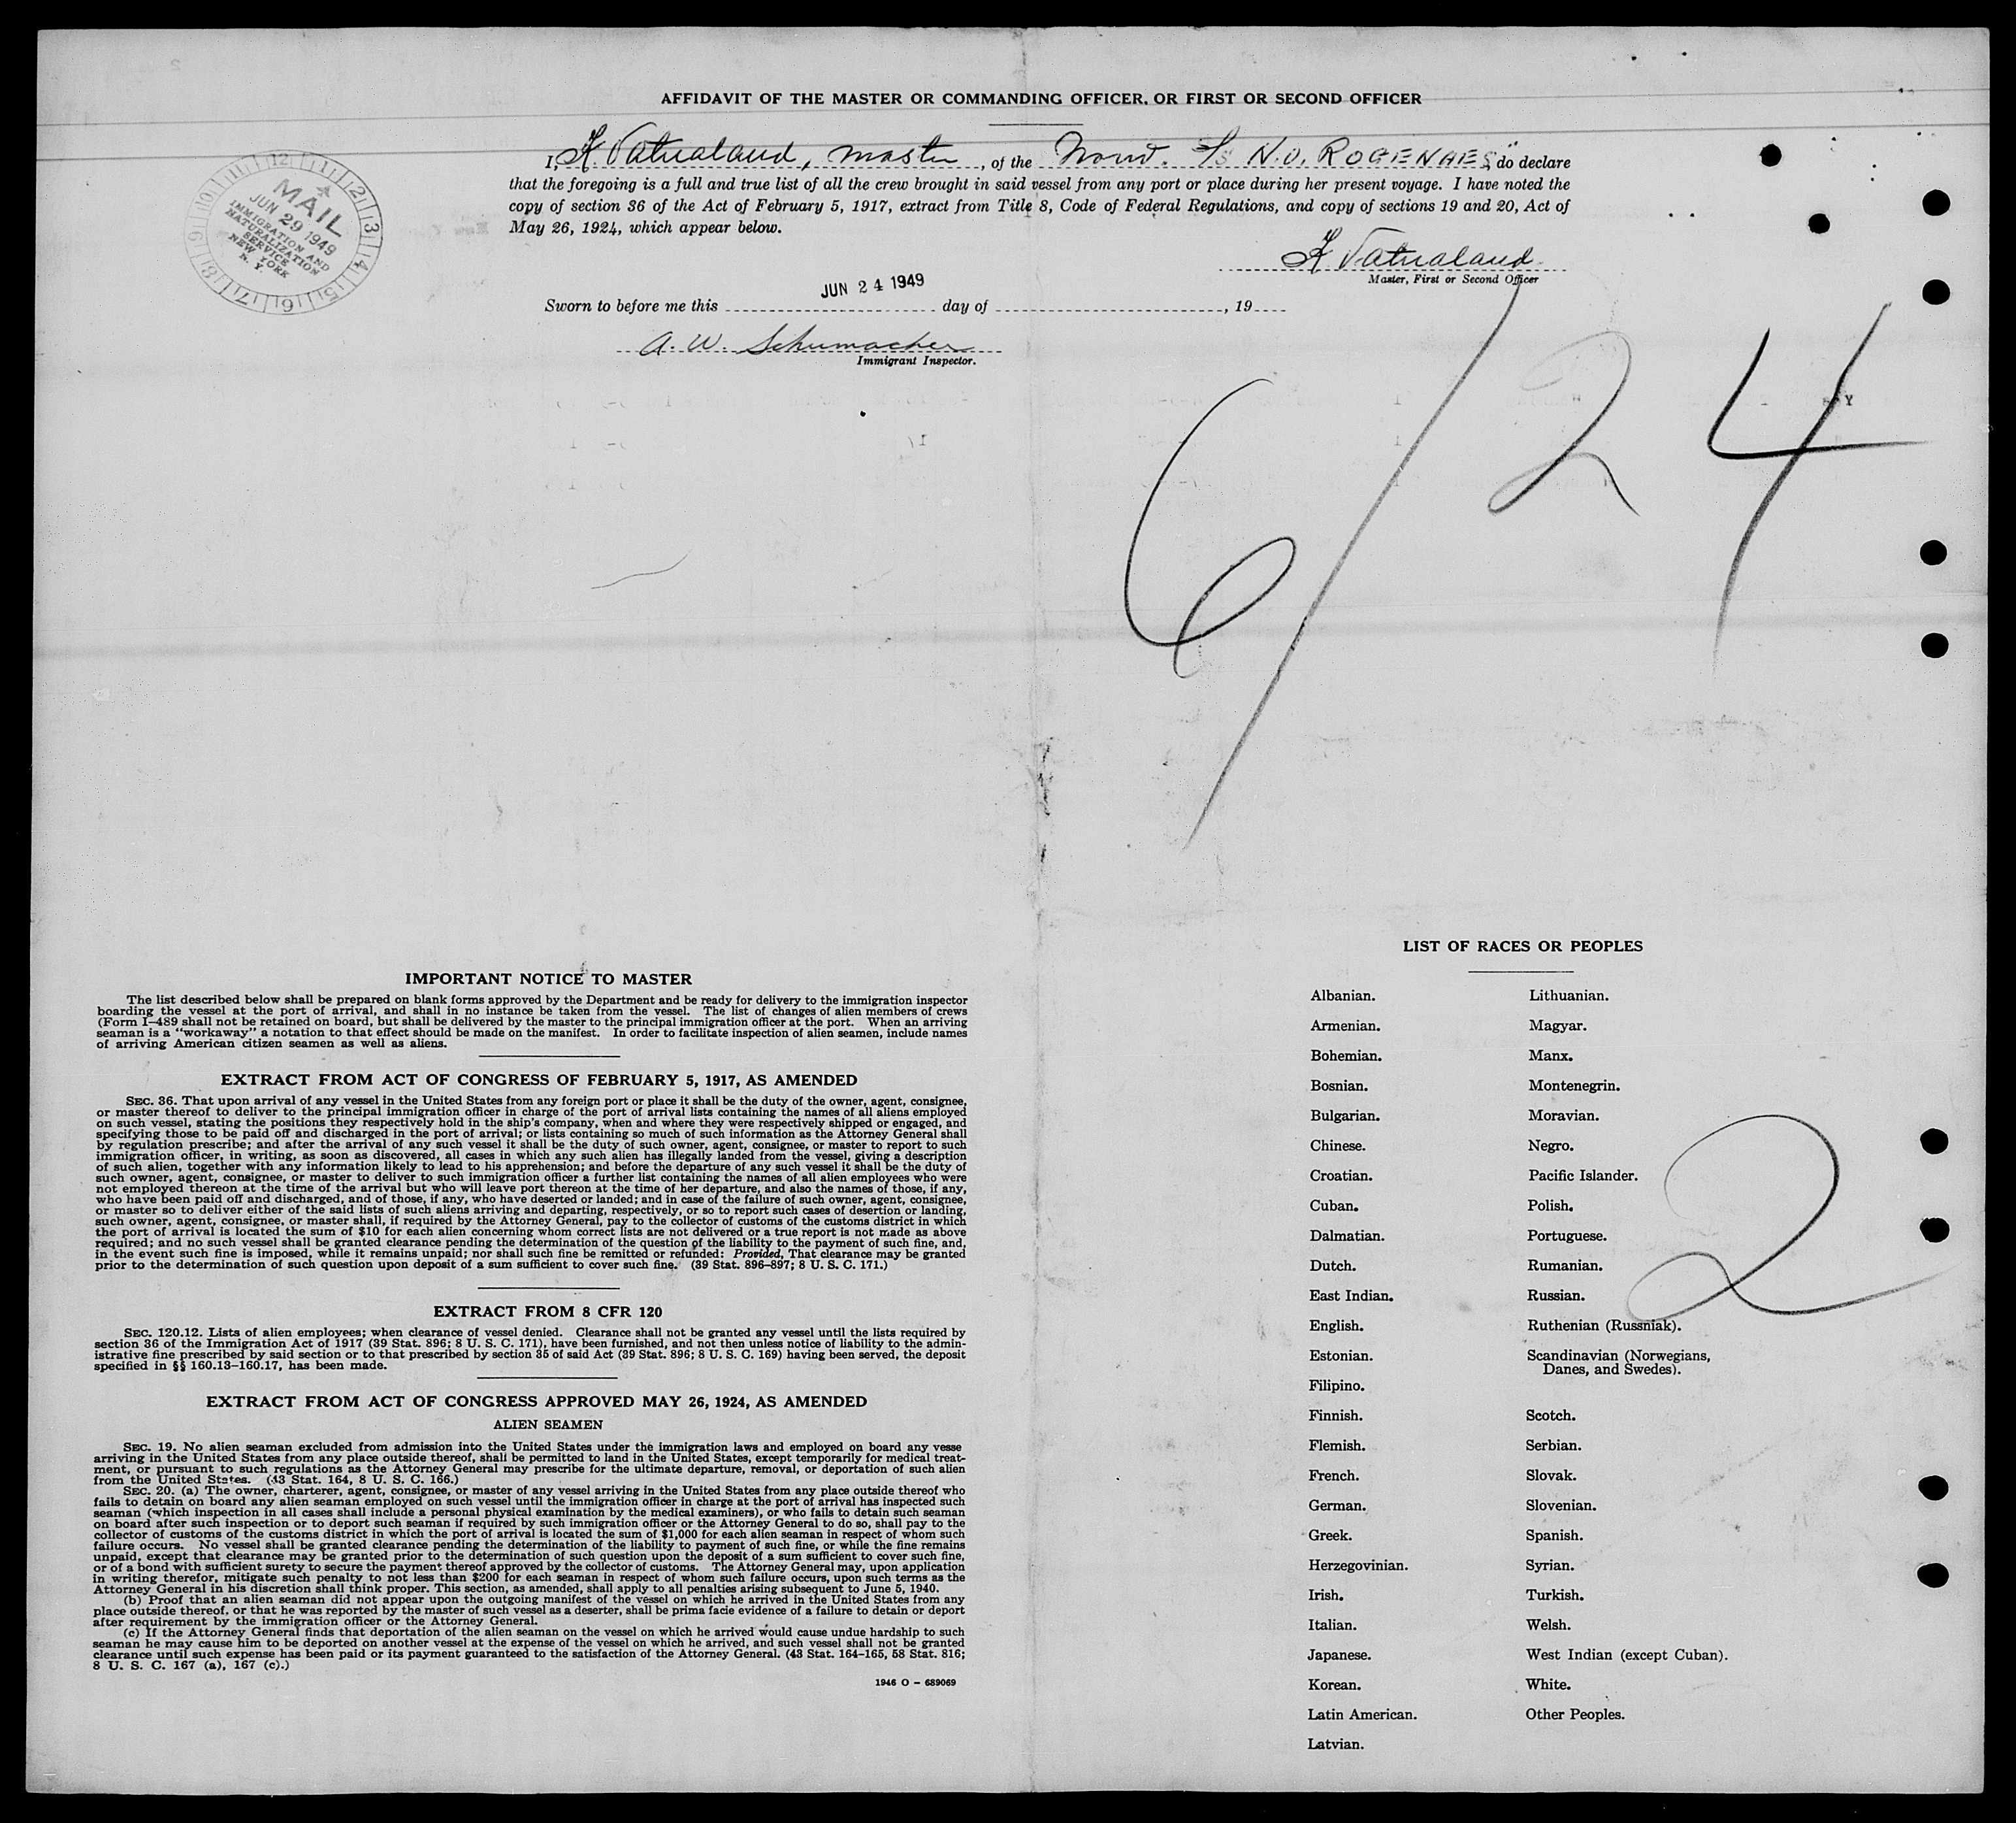 AFFIDAVIT OF THE MASTER OR COMMANDING OFFICER, OR FIRST OR SECOND OFFICER
I, K. Vatnaland, master, of the Norw. S/S N.O. ROGENAES", do declare
that the foregoing is a full and true list of all the crew brought in said vessel from any port or place during her present voyage. I have noted the
copy of section 36 of the Act of February 5, 1917, extract from Title 8, Code of Federal Regulations, and copy of sections 19 and 20, Act of
May 26, 1924, which appear below.
K Vatnaland
Master, First or Second Officer
JUN 24 1949
Sworn to before me this day of , 19
A. W. Schumacher
Immigrant Inspector.
MAIL
JUN 29 1949
IMMIGRATION AND
NATURALIZATION
SERVICE
NEW YORK
N. Y.
6/24
IMPORTANT NOTICE TO MASTER
The list described below shall be prepared on blank forms approved by the Department and be ready for delivery to the immigration inspector
boarding the vessel at the port of arrival, and shall in no instance be taken from the vessel. The list of changes of alien members of crews
(Form I-489 shall not be retained on board, but shall be delivered by the master to the principal immigration officer at the port. When an arriving
seaman is a "workaway" a notation to that effect should be made on the manifest. In order to facilitate inspection of alien seamen, include names
of arriving American citizen seamen as well as aliens.
EXTRACT FROM ACT OF CONGRESS OF FEBRUARY 5, 1917, AS AMENDED
SEC. 36. That upon arrival of any vessel in the United States from any foreign port or place it shall be the duty of the owner, agent, consignee,
or master thereof to deliver to the principal immigration officer in charge of the port of arrival lists containing the names of all aliens employed
on such vessel, stating the positions they respectively hold in the ship's company, when and where they were respectively shipped or engaged, and
specifying those to be paid off and discharged in the port of arrival; or lists containing so much of such information as the Attorney General shall
by regulation prescribe; and after the arrival of any such vessel it shall be the duty of such owner, agent, consignee, or master to report to such
immigration officer, in writing, as soon as discovered, all cases in which any such alien has illegally landed from the vessel, giving a description
of such alien, together with any information likely to lead to his apprehension; and before the departure of any such vessel it shall be the duty of
such owner, agent, consignee, or master to deliver to such immigration officer a further list containing the names of all alien employees who were
not employed thereon at the time of the arrival but who will leave port thereon at the time of her departure, and also the names of those, if any,
who have been paid off and discharged, and of those, if any, who have deserted or landed; and in case of the failure of such owner, agent, consignee,
or master so to deliver either of the said lists of such aliens arriving and departing, respectively, or so to report such cases of desertion or landing,
such owner, agent, consignee, or master shall, if required by the Attorney General, pay to the collector of customs of the customs district in which
the port of arrival is located the sum of $10 for each alien concerning whom correct lists are not delivered or a true report is not made as above
required; and no such vessel shall be granted clearance pending the determination of the question of the liability to the payment of such fine, and,
in the event such fine is imposed, while it remains unpaid; nor shall such fine be remitted or refunded: Provided, That clearance may be granted
prior to the determination of such question upon deposit of a sum sufficient to cover such fine. (39 Stat. 896–897; 8 U. S. C. 171.)
EXTRACT FROM 8 CFR 120
SEC. 120.12. Lists of alien employees; when clearance of vessel denied. Clearance shall not be granted any vessel until the lists required by
section 36 of the Immigration Act of 1917 (39 Stat. 896; 8 U. S. C. 171), have been furnished, and not then unless notice of liability to the admin-
istrative fine prescribed by said section or to that prescribed by section 35 of said Act (39 Stat. 896; 8 U. S. C. 169) having been served, the deposit
specified in §§ 160.13–160.17, has been made.
EXTRACT FROM ACT OF CONGRESS APPROVED MAY 26, 1924, AS AMENDED
ALIEN SEAMEN
SEC. 19. No alien seaman excluded from admission into the United States under the immigration laws and employed on board any vesse
arriving in the United States from any place outside thereof, shall be permitted to land in the United States, except temporarily for medical treat-
ment, or pursuant to such regulations as the Attorney General may prescribe for the ultimate departure, removal, or deportation of such alien
from the United States. (43 Stat. 164, 8 U. S. C. 166.)
SEC. 20. (a) The owner, charterer, agent, consignee, or master of any vessel arriving in the United States from any place outside thereof who
fails to detain on board any alien seaman employed on such vessel until the immigration officer in charge at the port of arrival has inspected such
seaman (which inspection in all cases shall include a personal physical examination by the medical examiners), or who fails to detain such seaman
on board after such inspection or to deport such seaman if required by such immigration officer or the Attorney General to do so, shall pay to the
collector of customs of the customs district in which the port of arrival is located the sum of $1,000 for each alien seaman in respect of whom such
failure occurs. No vessel shall be granted clearance pending the determination of the liability to payment of such fine, or while the fine remains
unpaid, except that clearance may be granted prior to the determination of such question upon the deposit of a sum sufficient to cover such fine,
or of a bond with sufficient surety to secure the payment thereof approved by the collector of customs. The Attorney General may, upon application
in writing therefor, mitigate such penalty to not less than $200 for each seaman in respect of whom such failure occurs, upon such terms as the
Attorney General in his discretion shall think proper. This section, as amended, shall apply to all penalties arising subsequent to June 5, 1940.
(b) Proof that an alien seaman did not appear upon the outgoing manifest of the vessel on which he arrived in the United States from any
place outside thereof, or that he was reported by the master of such vessel as a deserter, shall be prima facie evidence of a failure to detain or deport
after requirement by the immigration officer or the Attorney General.
(c) If the Attorney General finds that deportation of the alien seaman on the vessel on which he arrived would cause undue hardship to such
seaman he may cause him to be deported on another vessel at the expense of the vessel on which he arrived, and such vessel shall not be granted
clearance until such expense has been paid or its payment guaranteed to the satisfaction of the Attorney General. (43 Stat. 164–165, 58 Stat. 816;
8 U. S. C. 167 (a), 167 (c).)
1946 O - 689069
LIST OF RACES OR PEOPLES
Albanian. Lithuanian.
Armenian. Magyar.
Bohemian. Manx.
Bosnian. Montenegrin.
Bulgarian. Moravian.
Chinese. Negro.
Croatian. Pacific Islander.
Cuban. Polish.
Dalmatian. Portuguese.
Dutch. Rumanian.
East Indian. Russian.
English. Ruthenian (Russniak).
Estonian. Scandinavian (Norwegians,
Danes, and Swedes).
Filipino.
Finnish. Scotch.
Flemish. Serbian.
French. Slovak.
German. Slovenian.
Greek. Spanish.
Herzegovinian. Syrian.
Irish. Turkish.
Italian. Welsh.
Japanese. West Indian (except Cuban).
Korean. White.
Latin American. Other Peoples.
Latvian.
2